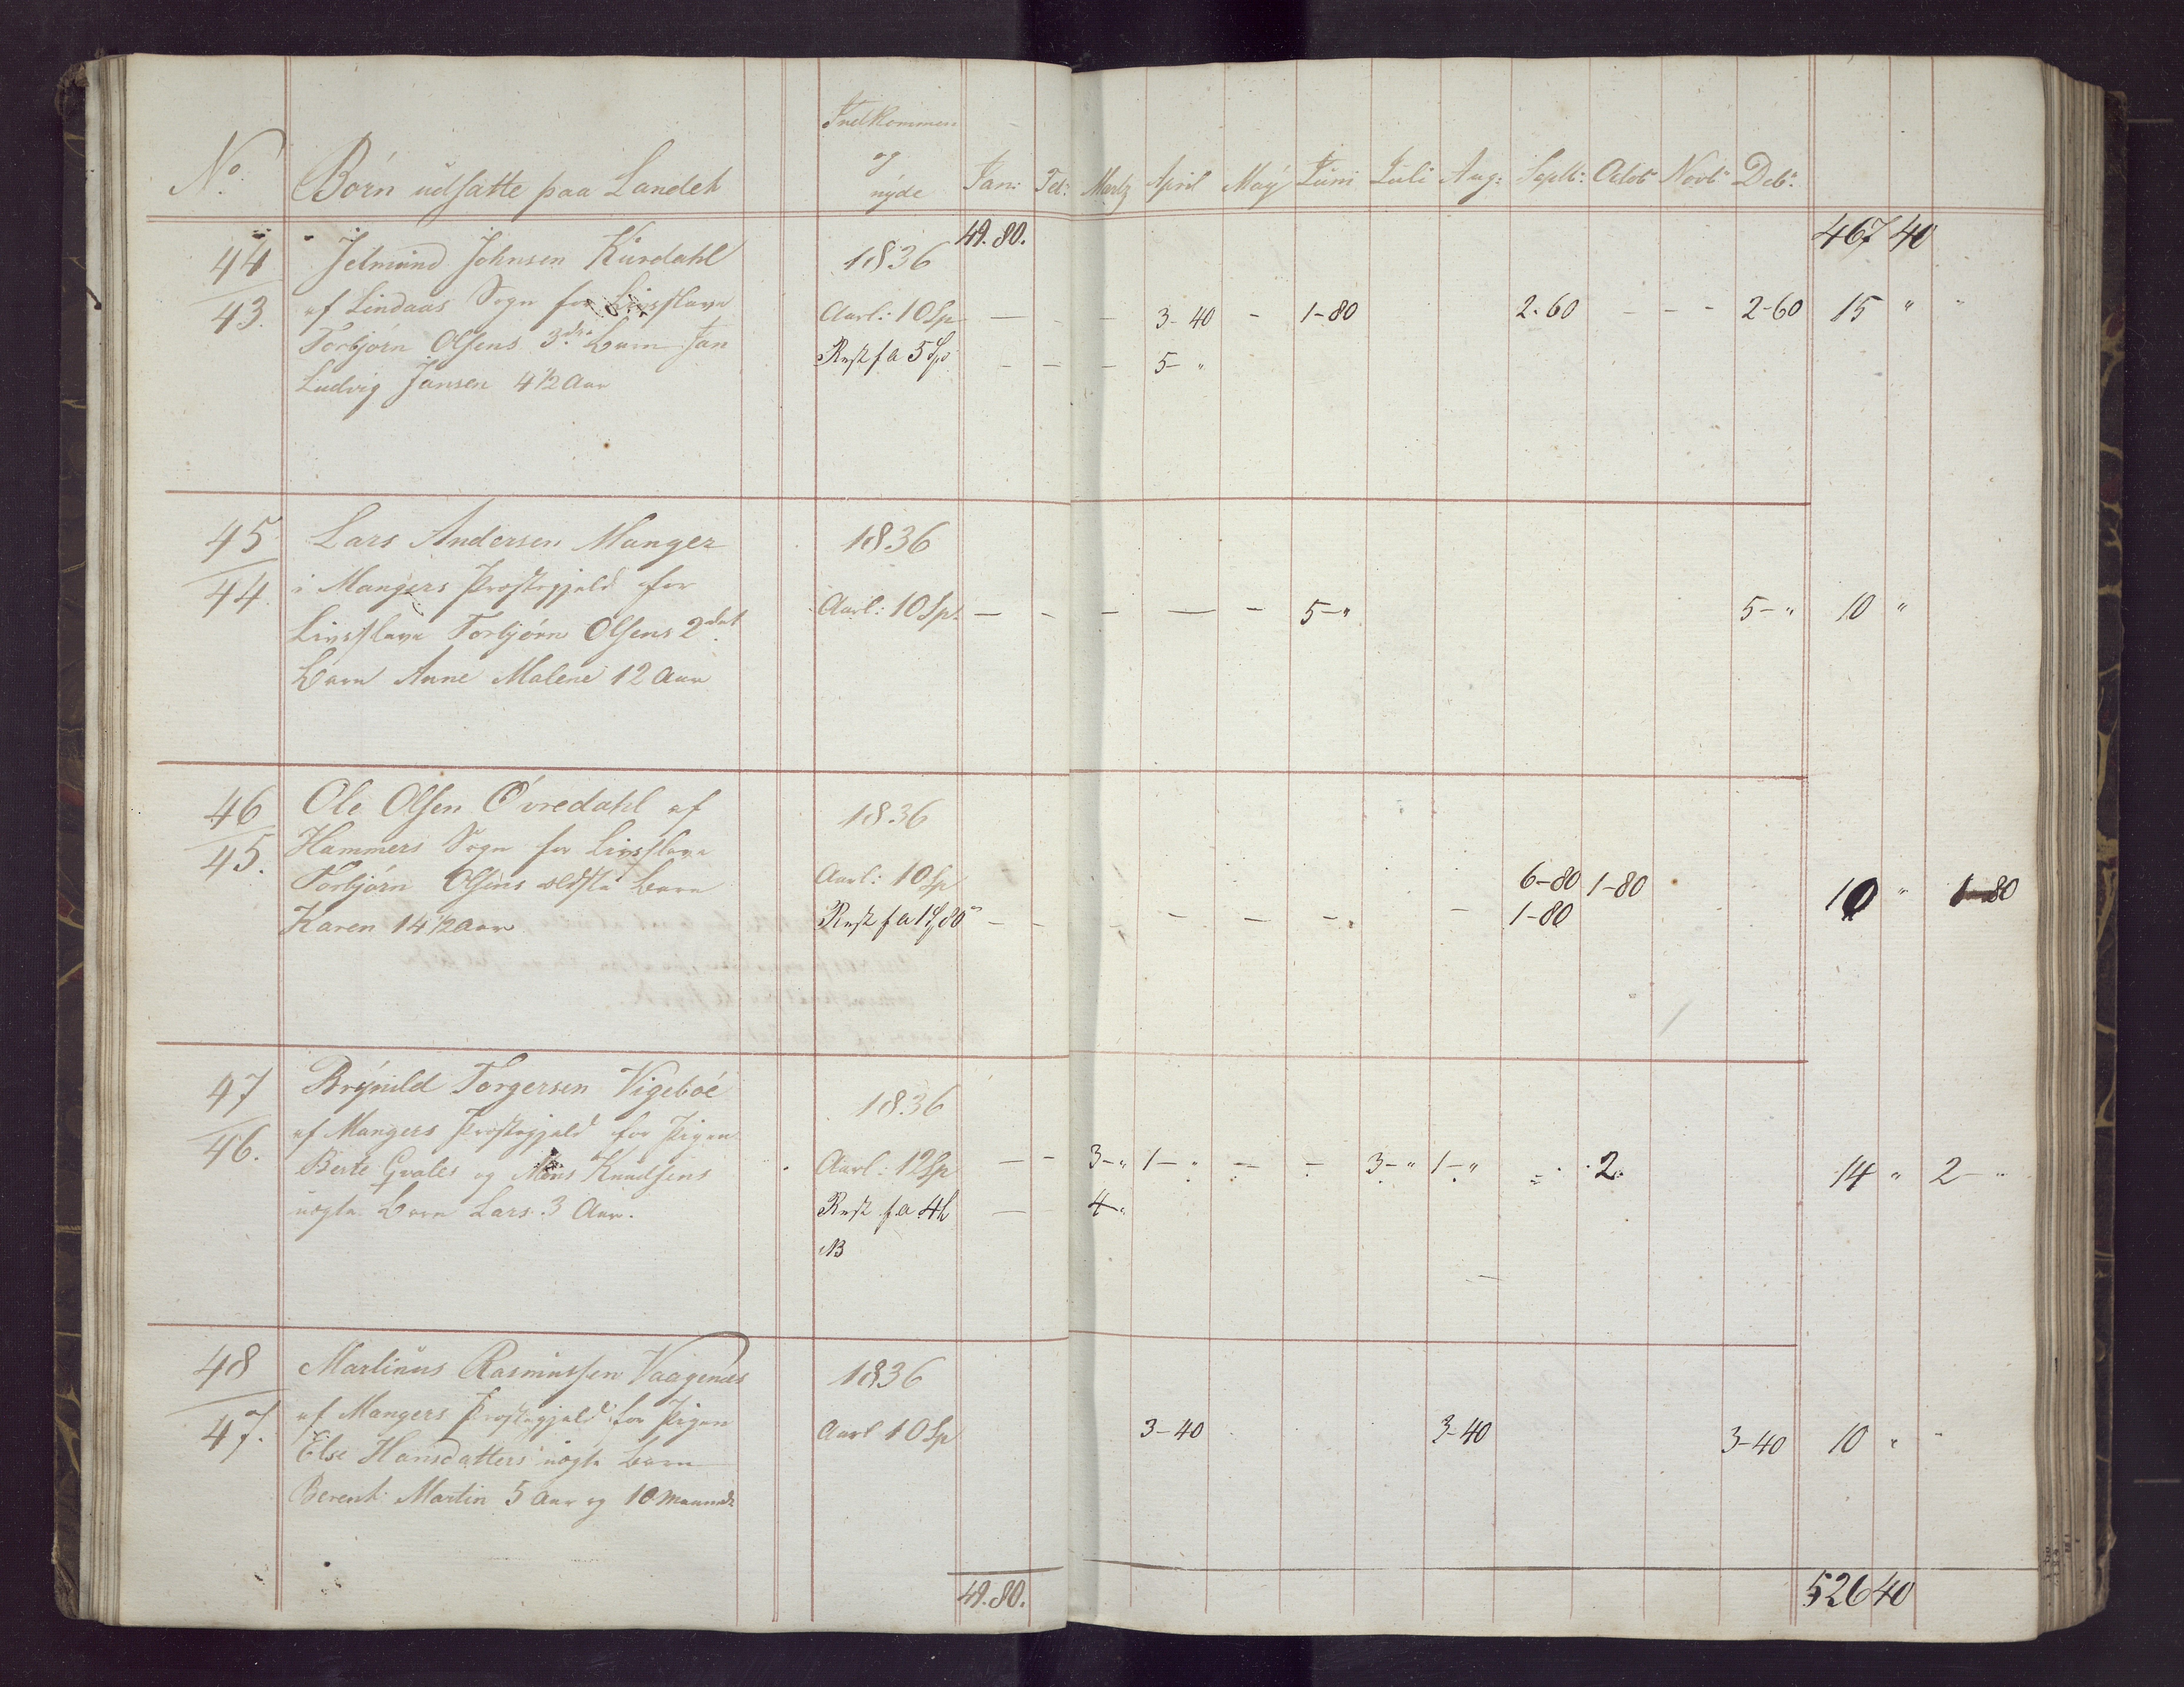 Indkommen
og
nyde
No. Börn udsatte paa Landet Jan: Feb: Martz April May Juni Juli Aug: Septb: Octob Novb Deb:
49.80. 467 40
44 Jetmund Johnsen Kurdahl 1836
43. af Lindaas Sogn for Livsslave Aarl: 10 Sp — - — 3-40 - 1-80 2-60 - - - 2-60 15 " "
Torbjörn Olsens 3die Barn Jan Rest fa 5 Sp - — - 5- "
Ludvig Jansen 4 1/2 Aar
45 Lars Andersen Manger 1836
44. i Mangers Præstegjeld for Aarl: 10 Sp. — - - — - 5-" 5-" 10 "
Livsslave Torbjörn Olsens 2det
Barn Anne Malene 12 Aar
46 Ole Olsen Övredahl af 1836
45. Hammers Sogn for Livsslave
Torbjörn Olsens ældste Barn Aarl: 10 Sp 6-80 1-80 10 " 1-80
Karen 14 1/2 Aar Rest fa 1 Sp 80 - - - - - - 1-80
47 Brynild Torgersen Vigeboe 1836
46. af Mangers Præstegjeld for Pigen
Berte Gvales og Mons Knudsens Aarl: 12 Sp — - 3-" 1-" - - 3-" 1-" - 2. 14 " 2-"
uægte Barn Lars 3 Aar. Rest fa 4 — 4-"
NB
48 Martinus Rasmussen Vaagenæs 1836
47. af Mangers Præstegjeld for Pigen Aarl 10 Sp 3-40 3-40 3-40 10 " "
Else Hansdatters uægte Barn
Berent Martin 5 Aar og 10 Maaneder
49.80. 526 40